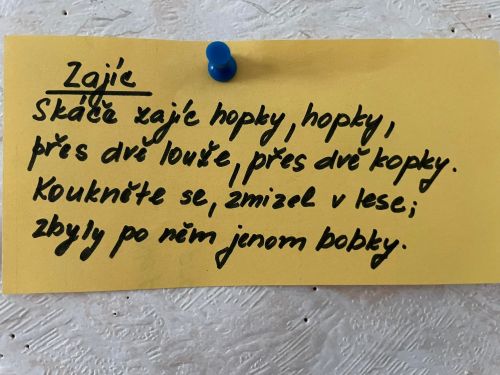 Zajíc
Skáče zajíc hopky, hopky,
přes dvě louže, přes dvě kopky.
Koukněte se, zmizel v lese;
zbyly po něm jenom bobky.